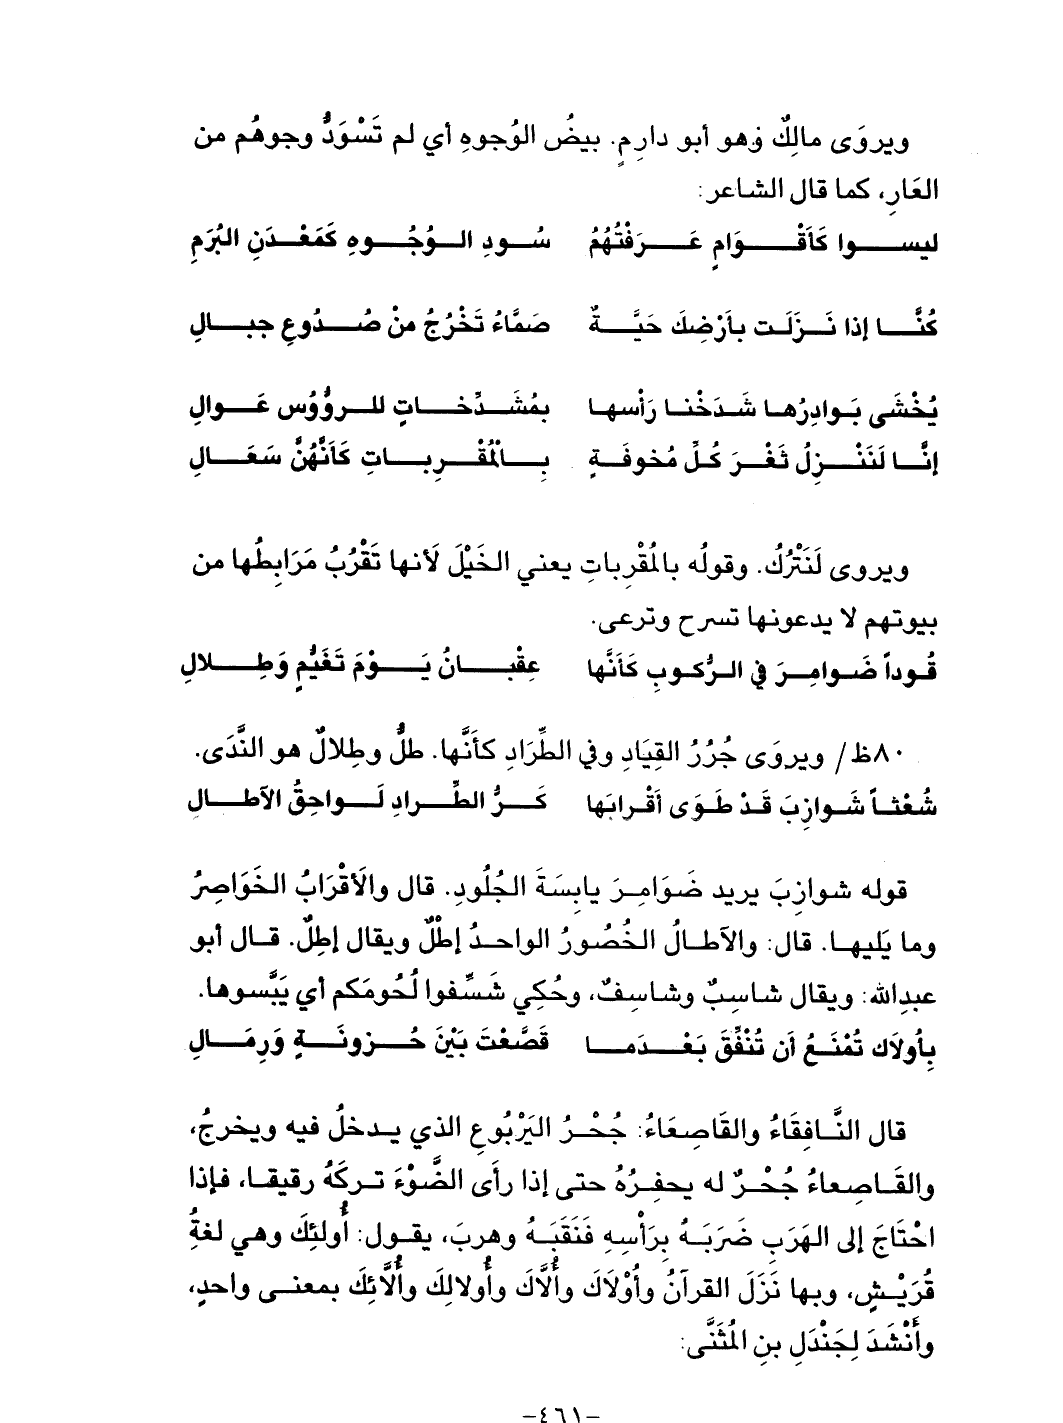 ويروَى مالِكٌ وهو أبو دارِمٍ. بيضُ الوُجوهِ أي لم تَسْوَدُّ وجوهُم من
العَارِ، كما قال الشاعر:
ليســـوا كَأَقْـــوَامٍ عَـــرَفْتُهُمُ سُـودِ الـوُجُـوهِ كَمَعْـدَنِ البُرَمِ
كُنَّـــا إذا نَـزَلَـت بأَرْضِكَ حَيَّـــةٌ صَمَّاءُ تَخْرُجُ منْ صُـدُوعِ جبـالِ
يُخْشَى بَـوادِرُهـا شَـدَخْنـا رَأسهـا بمُشَـدِّخـاتٍ للـرؤُوس عَـوالِ
إنَّـــا لَنَنْـزِلُ ثَغْـرَ كُـلِّ مُخوفَـةٍ بـالْمُقْـرِبـاتِ كَأَنَّهُنَّ سَعَـالِ
ويروى لَنَتْرُك. وقولُه بالمُقْرِباتِ يعني الخَيْلَ لَأنها تَقْرُبُ مَرَابِطُها من
بيوتهم لا يدعونها تسرح وترعى.
قُوداً ضَـوامِـرَ في الـرُّكـوبِ كَأَنَّها عِقْبـانُ يَـوْمَ تَغَيُّمٍ وَطِـلالِ
٨٠ظ/ ويروَى جُرُرُ القِيَادِ وفي الطِّرَادِ كأَنَّها. طلُّ وطِلالٌ هو النَّدَى.
شُعْثـاً شَـوازِبَ قَـدْ طَـوَى أَقْرابَها كَـرُّ الطِّـرادِ لَـواحِقُ الآطـالِ
قوله شوازِبَ يريد ضَوَامِـرَ يابِسَةَ الجُلُودِ. قال والأَقْرَابُ الخَوَاصِرُ
وما يَليهـا. قال: والآطـالُ الخُصُورُ الواحـدُ إطْلٌ ويقال إطِلٌ. قـال أبو
عبدِالله: ويقال شاسِبٌ وشاسِفٌ، وحُكِي شَسِّفوا لُحُومَكم أي يَبَّسوها.
بِأُولاَك تُمْنَـعُ أن تُنْفِّقَ بَعْـدَمـا قَصَّعْتَ بَيْنَ حُـزونَـةٍ وَرِمَـالِ
قال النَّـافِقَاءُ والقَاصِعَاءُ: جُحْـرُ اليَرْبُوعِ الذي يـدخلُ فيه ويخرجُ،
والقَـاصِعاءُ جُحْـرٌ له يحفِـرُهُ حتى إذا رأى الضَّوْءَ تـركَهُ رقيقـا، فإذا
احْتَاجَ إلى الهَرَبِ ضَرَبَـهُ بِرَأْسِهِ فَنَقَبَـهُ وهربَ، يقـول: أُولئِكَ وهي لغةُ
قُرَيْـشٍ، وبها نَزَلَ القرآنُ وأُوْلاَكَ وأُلَّاكَ وأُولالِكَ وأُلَّائِكَ بمعنـى واحدٍ،
وأَنْشَدَ لِجَنْدَلِ بنِ المُثَنَّى:
-٤٦١-